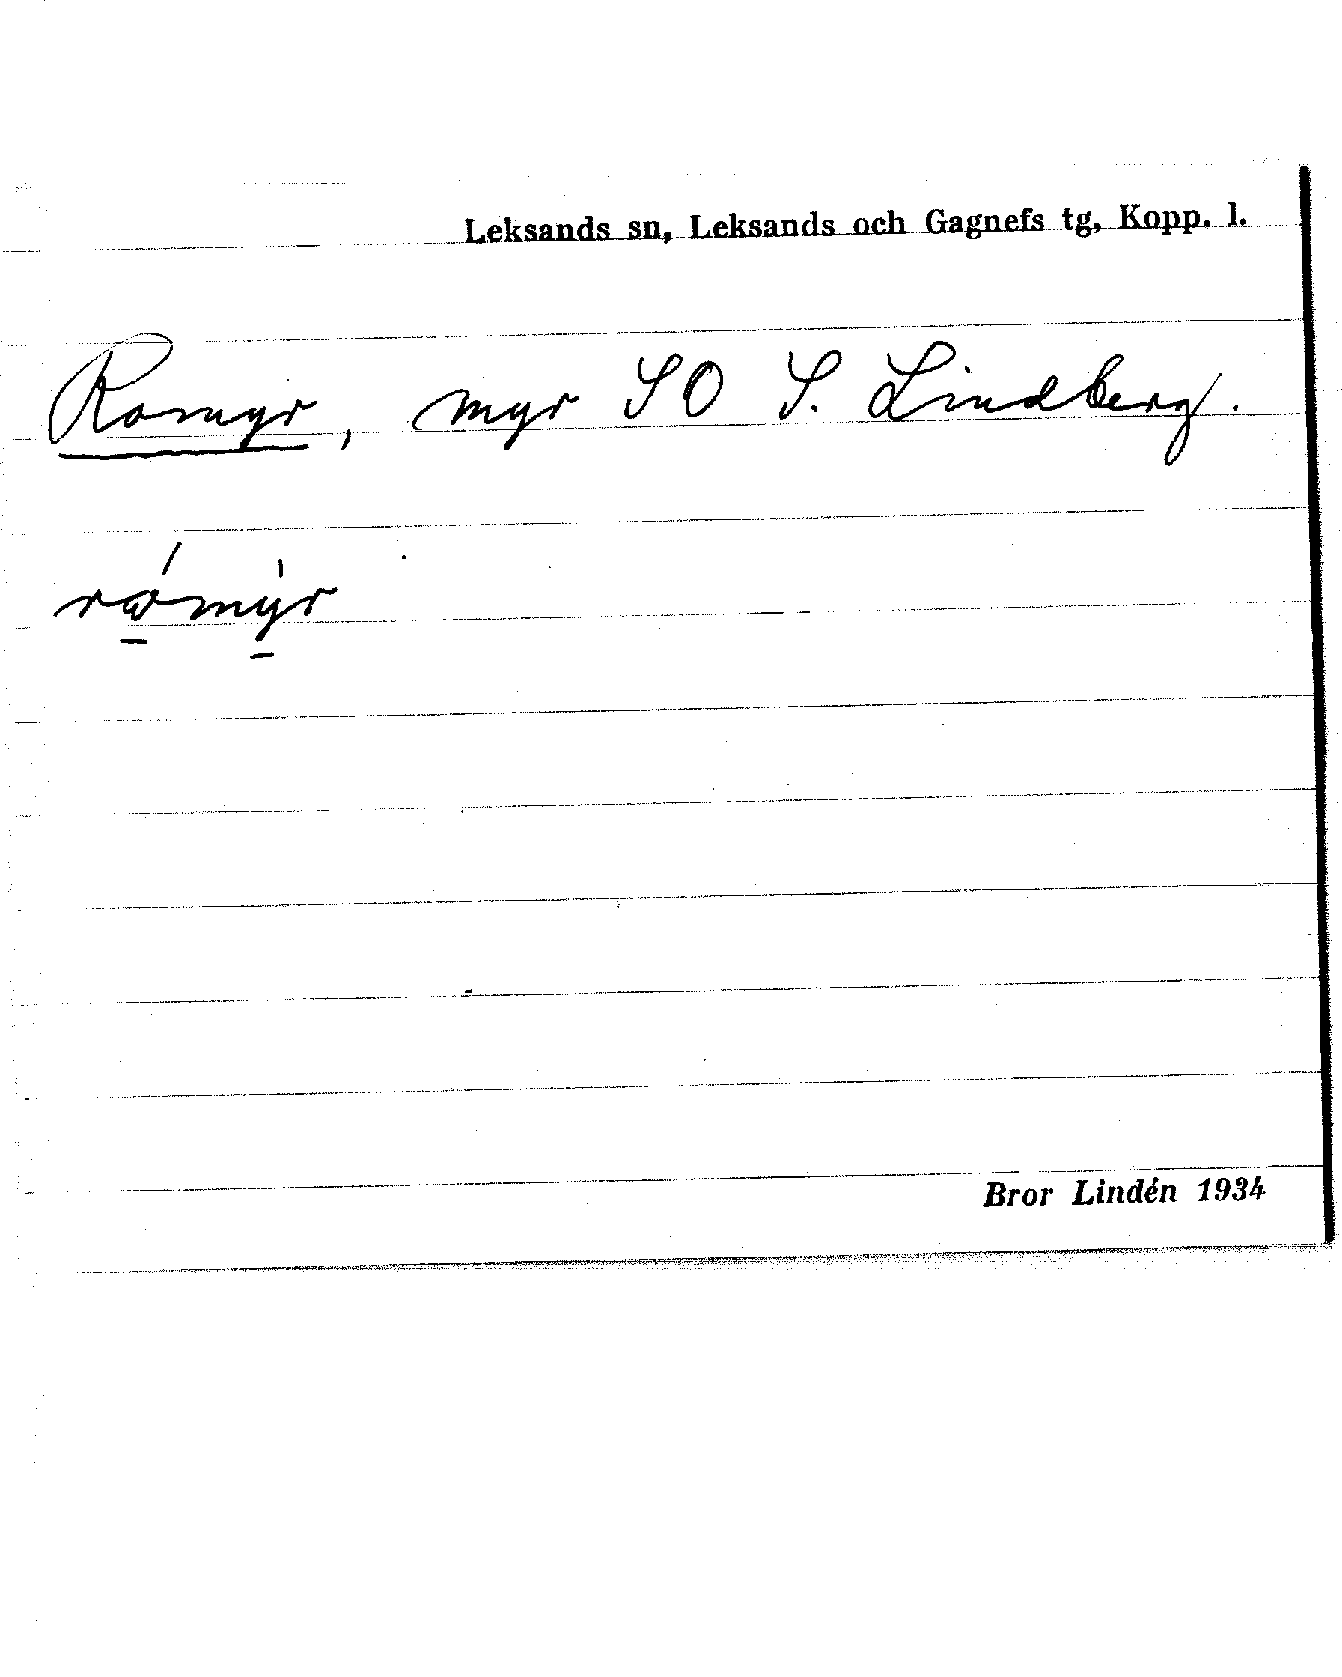 Leksands sn, Leksands och Gagnefs tg, Kopp. l.
Romyr, myr SO S. Lindberg.
rómýr
Bror Lindén 1934